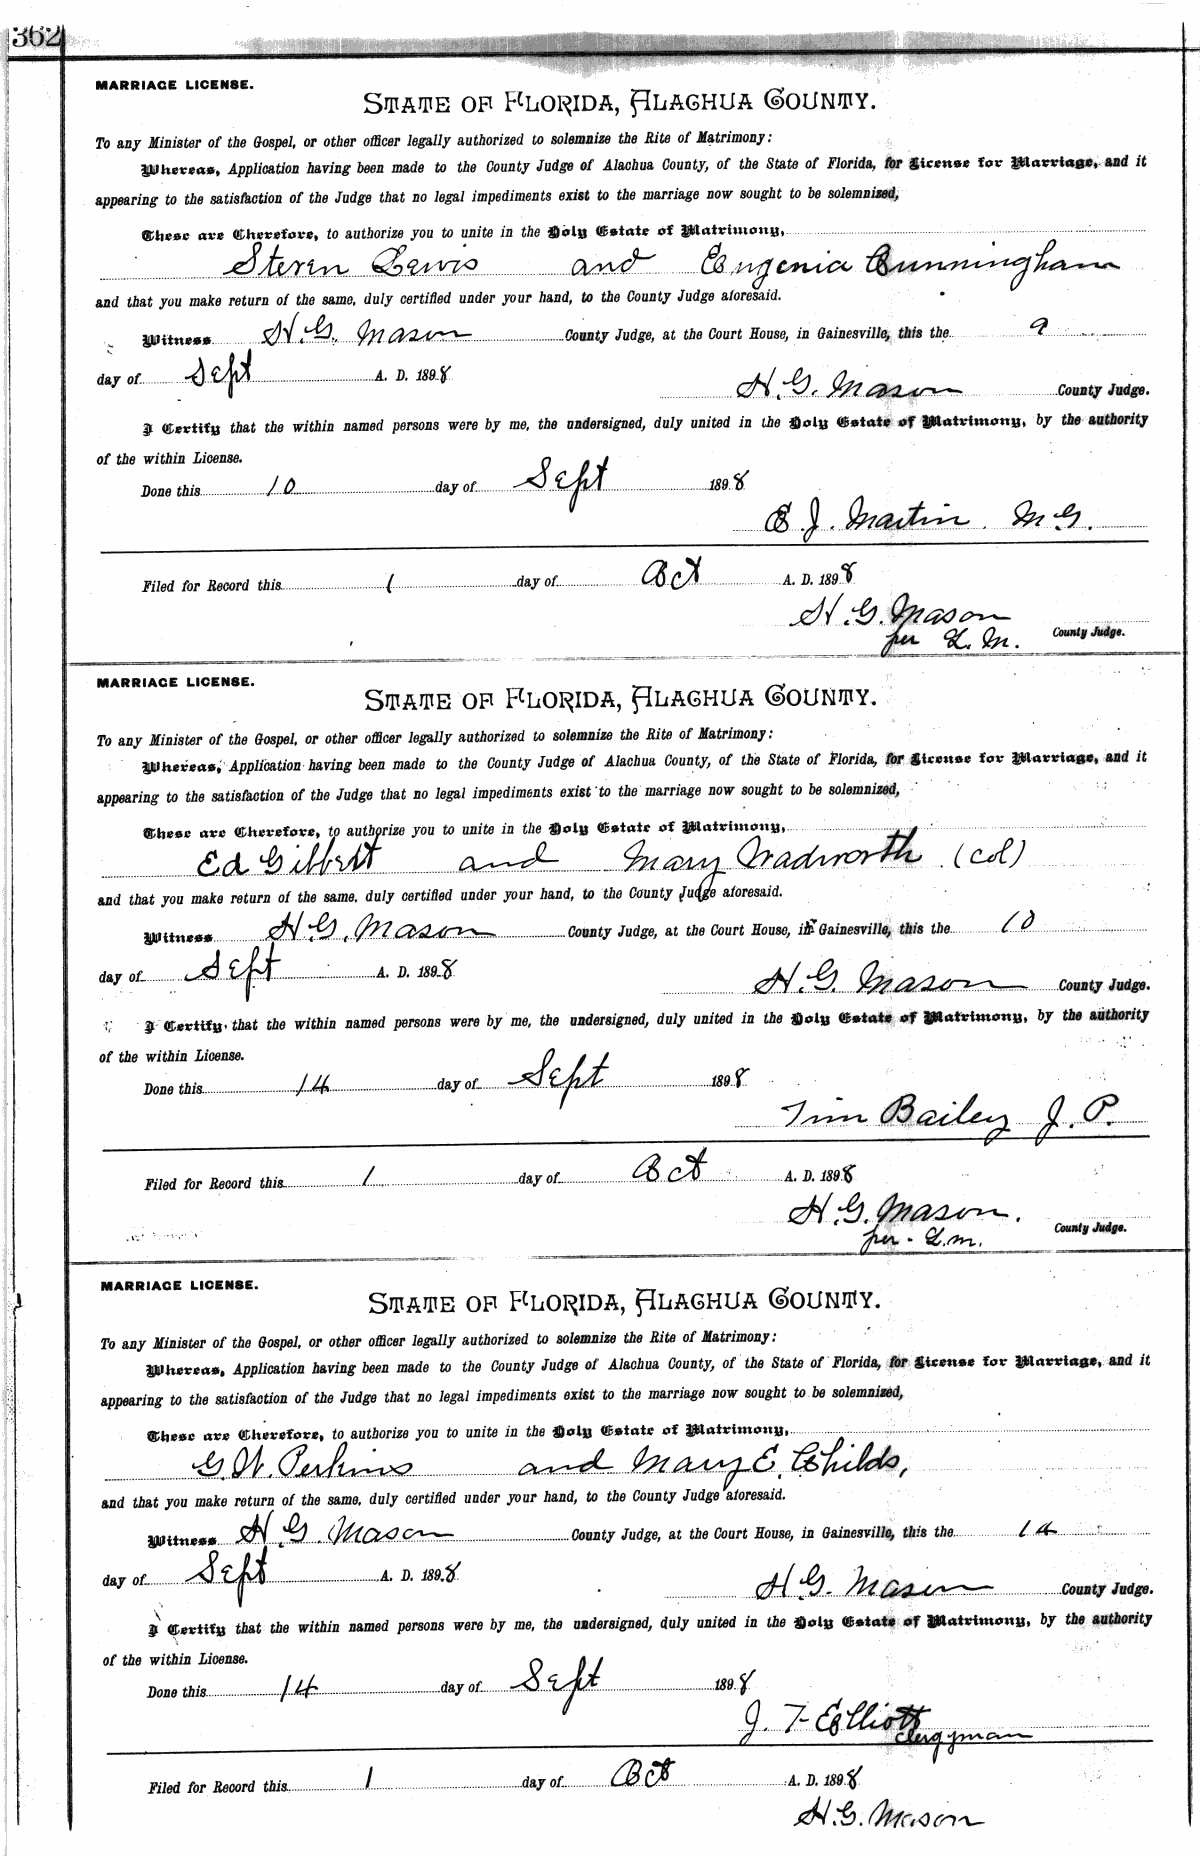 362
MARRIAGE LICENSE.
STATE OF FLORIDA, ALACHUA COUNTY.
To any Minister of the Gospel, or other officer legally authorized to solemnize the Rite of Matrimony:
Whereas, Application having been made to the County Judge of Alachua County, of the State of Florida, for License for Marriage, and it
appearing to the satisfaction of the Judge that no legal impediments exist to the marriage now sought to be solemnized,
These are Therefore, to authorize you to unite in the Holy Estate of Matrimony,
Steven Lewis and Eugenia Cunningham
and that you make return of the same, duly certified under your hand, to the County Judge aforesaid.
Witness H. G. Mason County Judge, at the Court House, in Gainesville, this the 9
day of Sept A. D. 1898
H. G. Mason County Judge.
I Certify that the within named persons were by me, the undersigned, duly united in the Holy Estate of Matrimony, by the authority
of the within License.
Done this 10 day of Sept 1898
E. J. Martin. M G.
Filed for Record this 1 day of Oct A. D. 1898
H. G. Mason
per L. M. County Judge.
MARRIAGE LICENSE.
STATE OF FLORIDA, ALACHUA COUNTY.
To any Minister of the Gospel, or other officer legally authorized to solemnize the Rite of Matrimony:
Whereas, Application having been made to the County Judge of Alachua County, of the State of Florida, for License for Marriage, and it
appearing to the satisfaction of the Judge that no legal impediments exist to the marriage now sought to be solemnized,
These are Therefore, to authorize you to unite in the Holy Estate of Matrimony,
Ed Gilbert and Mary Wadworth (col)
and that you make return of the same, duly certified under your hand, to the County Judge aforesaid.
Witness H. G. Mason County Judge, at the Court House, in Gainesville, this the 10
day of Sept A. D. 1898
H. G. Mason County Judge.
I Certify that the within named persons were by me, the undersigned, duly united in the Holy Estate of Matrimony, by the authority
of the within License.
Done this 14 day of Sept 1898
Tim Bailey J. P.
Filed for Record this 1 day of Oct A. D. 1898
H. G. Mason.
per. L. M. County Judge.
MARRIAGE LICENSE.
STATE OF FLORIDA, ALACHUA COUNTY.
To any Minister of the Gospel, or other officer legally authorized to solemnize the Rite of Matrimony:
Whereas, Application having been made to the County Judge of Alachua County, of the State of Florida, for License for Marriage, and it
appearing to the satisfaction of the Judge that no legal impediments exist to the marriage now sought to be solemnized,
These are Therefore, to authorize you to unite in the Holy Estate of Matrimony,
G. W. Perkins and Mary E. Childs,
and that you make return of the same, duly certified under your hand, to the County Judge aforesaid.
Witness H. G. Mason County Judge, at the Court House, in Gainesville, this the 14
day of Sept A. D. 1898
H. G. Mason County Judge.
I Certify that the within named persons were by me, the undersigned, duly united in the Holy Estate of Matrimony, by the authority
of the within License.
Done this 14 day of Sept 1898
J. T. Elliott
Clergyman
Filed for Record this 1 day of Oct A. D. 1898
H. G. Mason